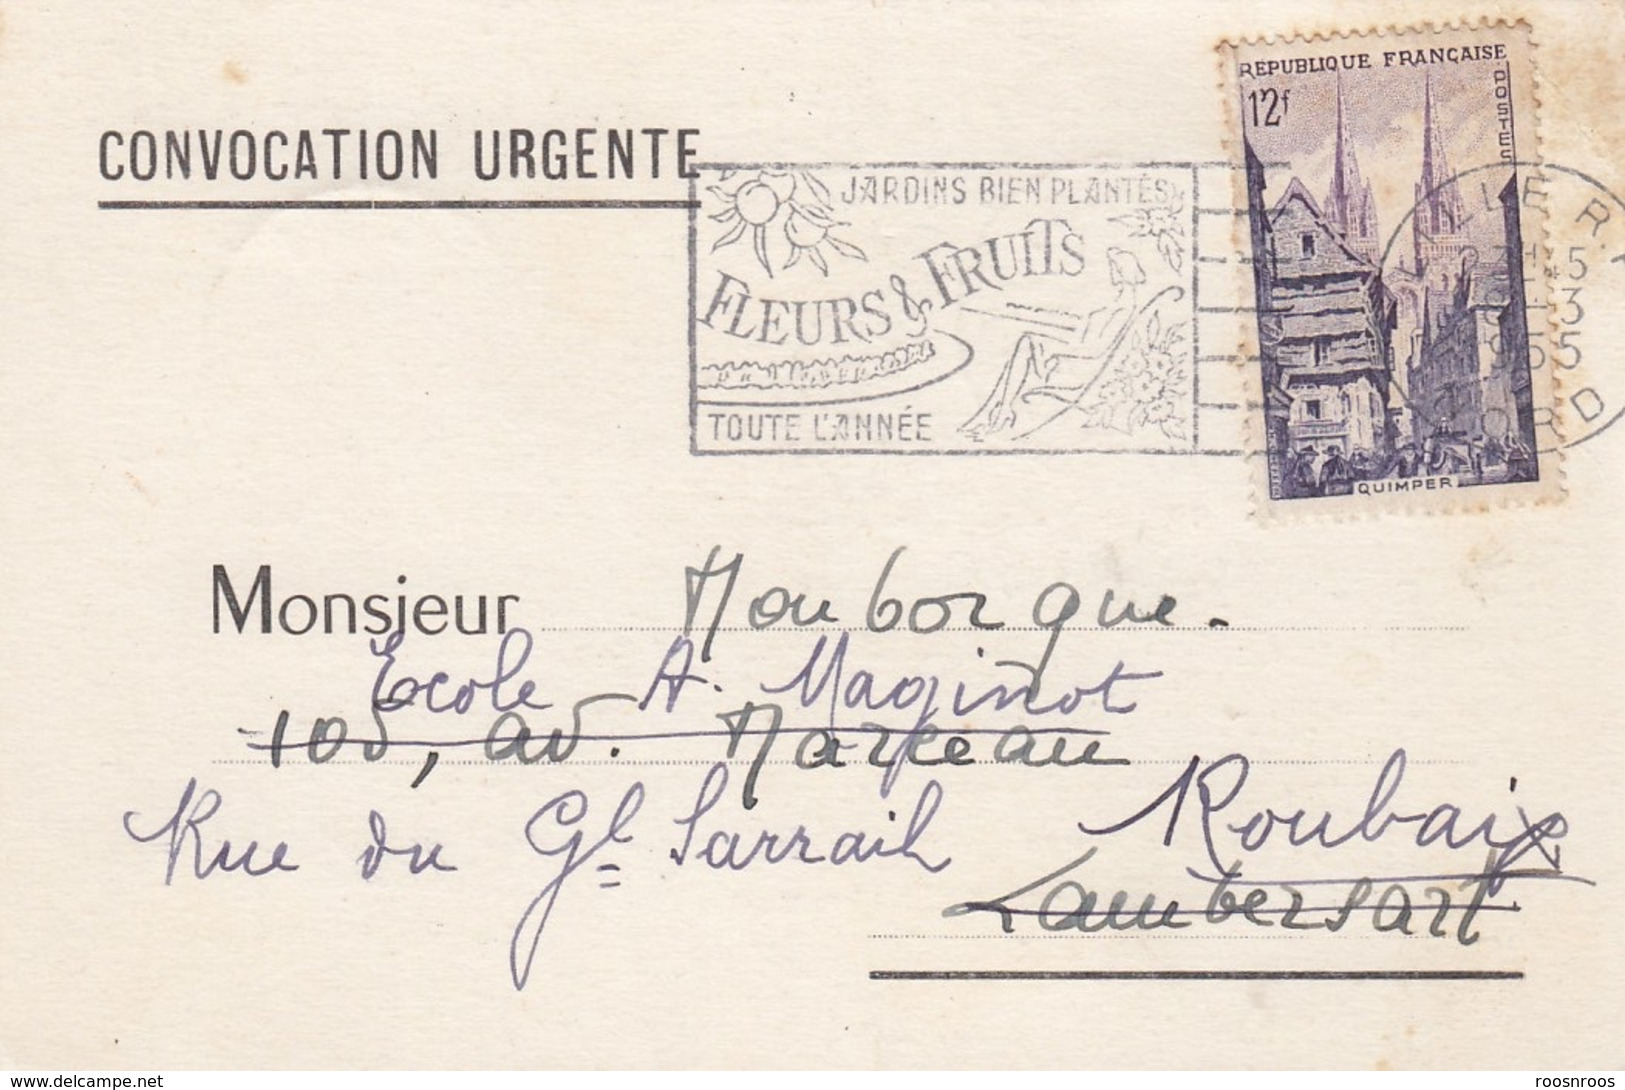 RÉPUBLIQUE FRANÇAISE
POSTES
12f
CONVOCATION URGENTE
JARDINS BIEN PLANTÉS
FLEURS & FRUITS
TOUTE L'ANNÉE
LILLE R.P.
1955
NORD
QUIMPER
Monsieur Mauborgne.
Ecole A. Maginot
105, av. Marceau
Rue du Gl Sarrail Roubaix
Lambersart
www.delcampe.net
roosnroos